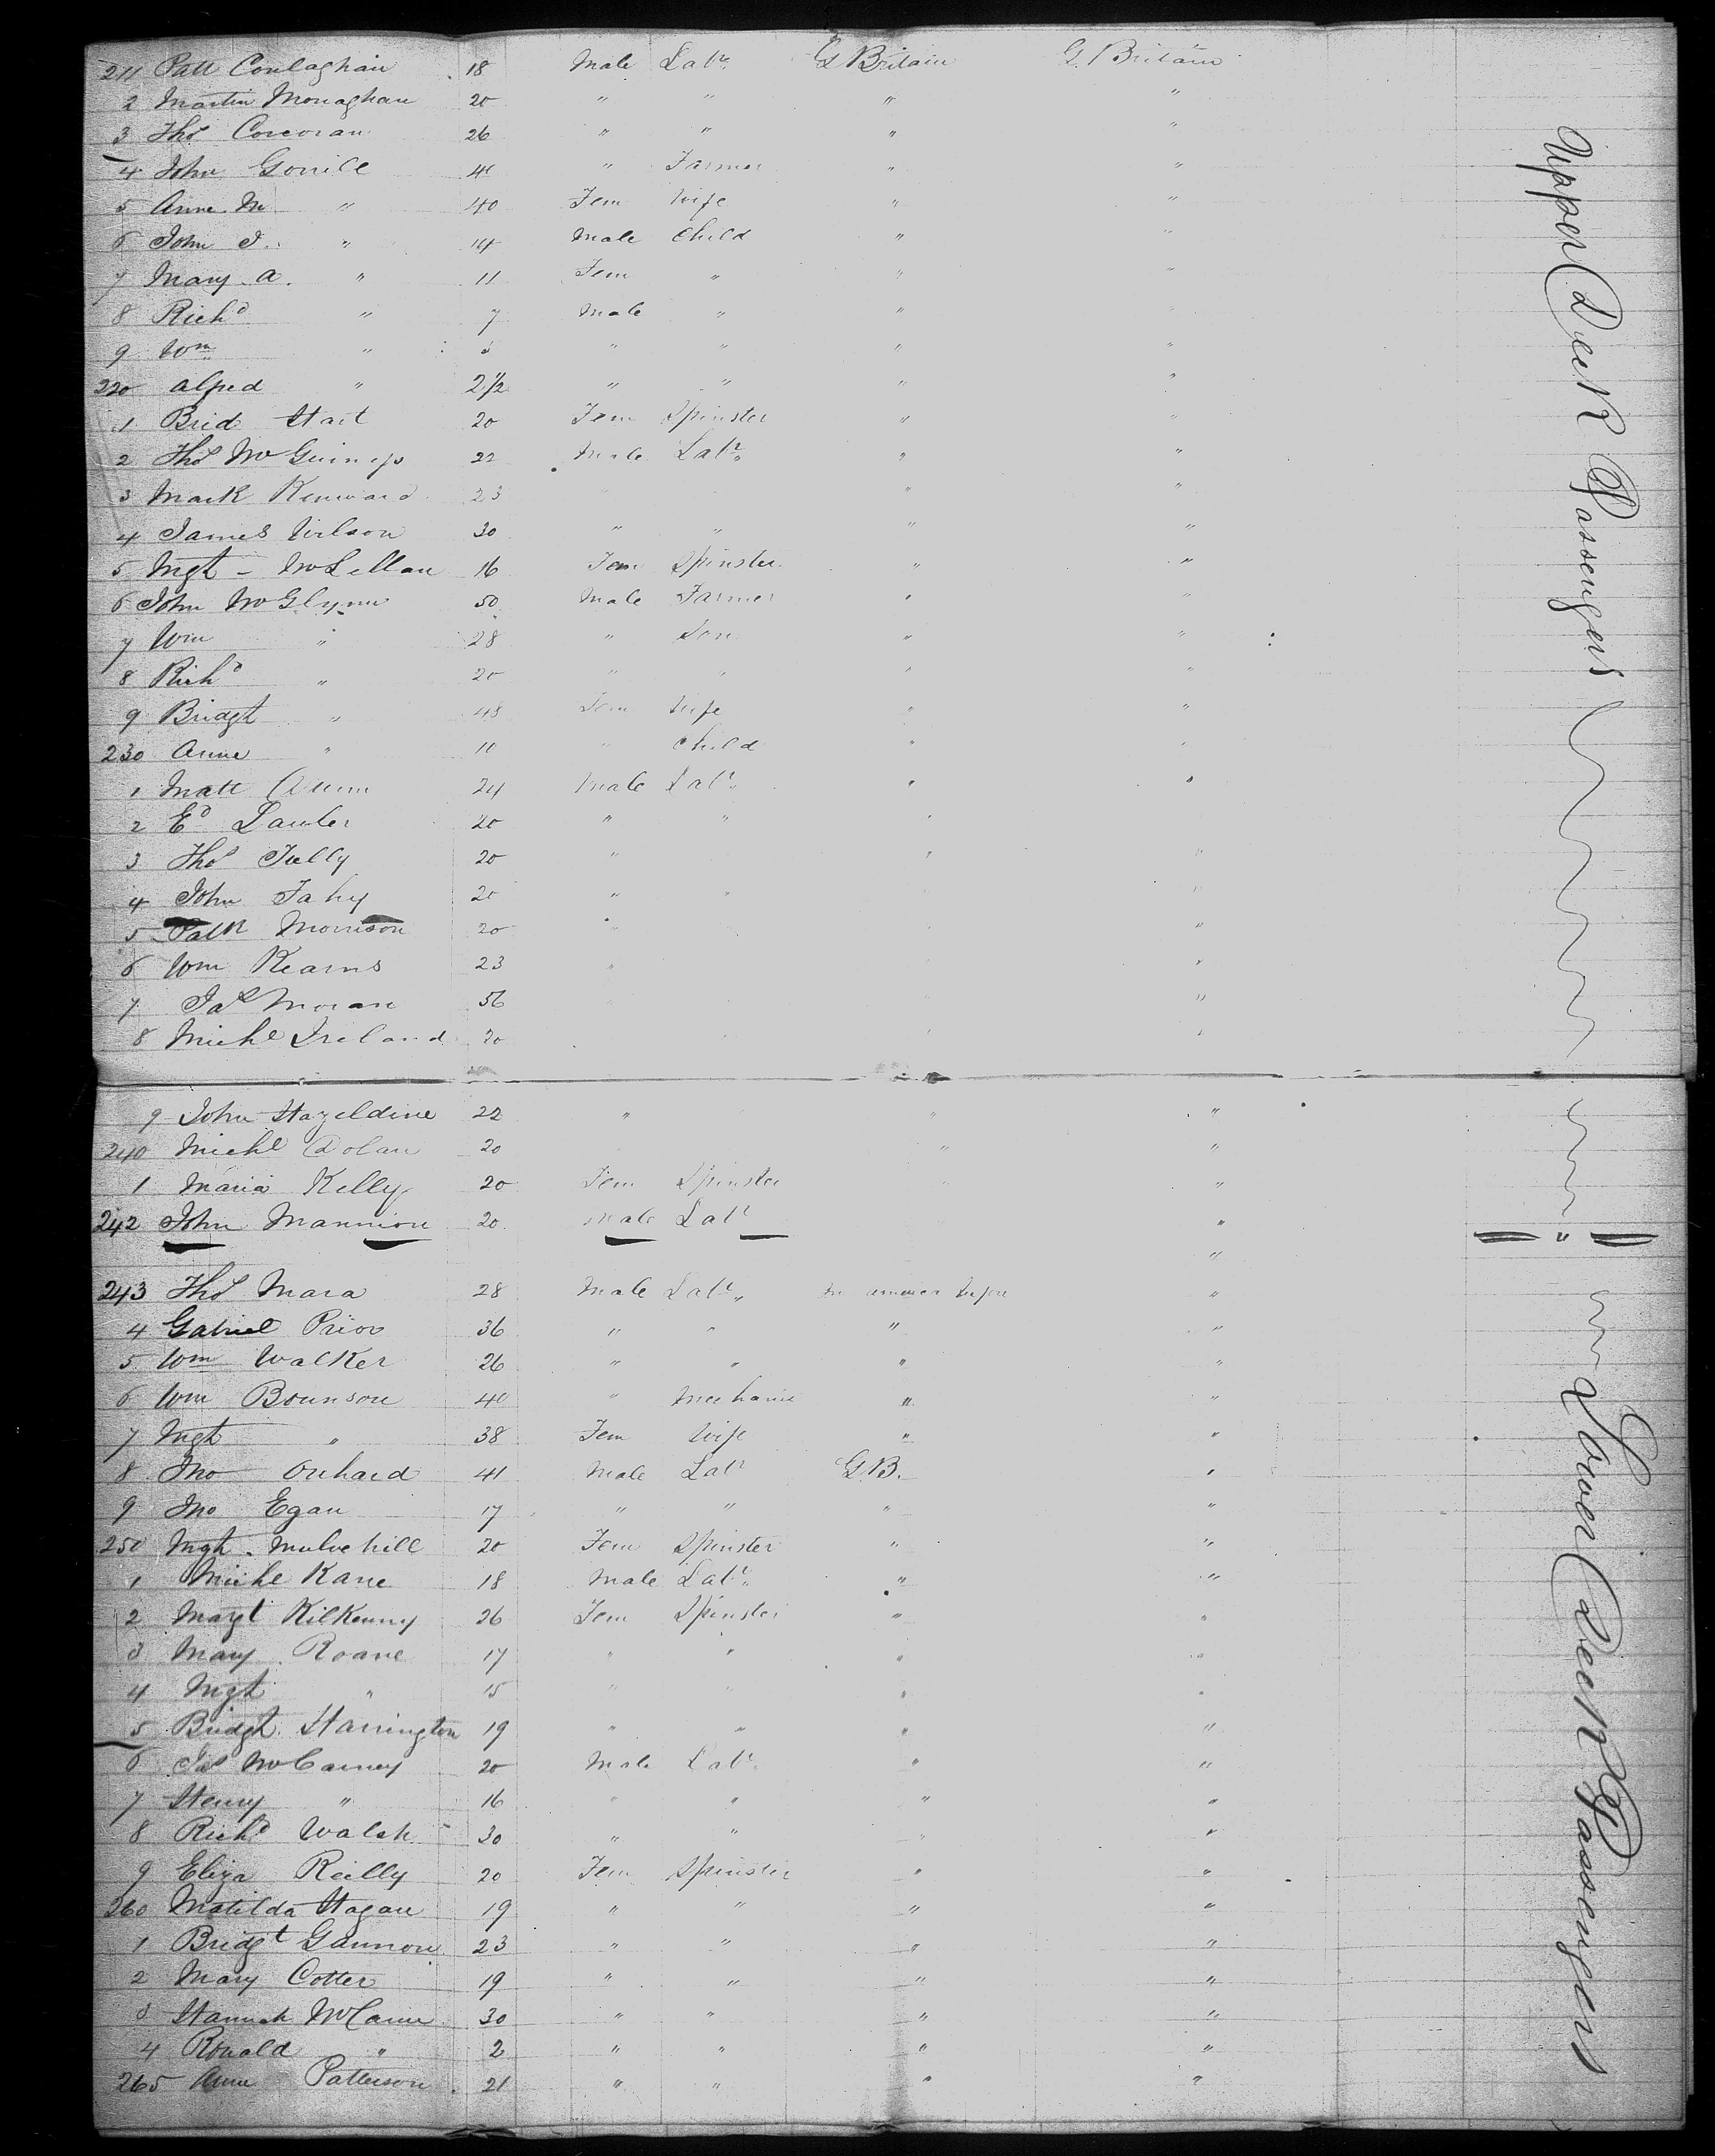 211 Patt Conlaghan 18 Male Labr. G Britain G. Britain
2 Martin Monaghan 20 " " " "
3 Thos Corcoran 26 " " " "
4 John Gorrill 41 " Farmer " "
5 Anne M " 40 Fem Wife " "
6 John J. " 14 Male Child " "
7 Mary A. " 11 Fem " " "
8 Richd " 7 Male " " "
9 Wm " " " " "
220 Alfred " 2 1/2 " " " "
1 Brid Hart 20 Fem Spinster " "
2 Thos McGuiness 22 Male Labr. " "
3 Mark Kenward 23 " "
4 James Wilson 30 " " " "
5 Mgt - McLellan 16 Fem Spinster " "
6 John McGlynn 50 Male Farmer " "
7 Wm " 28 " Son " "
8 Richd " 20 " " " "
9 Bridgt " 48 Fem Wife " "
230 Anne " 10 " Child " "
1 Matt Dunn 24 Male Labr. " "
2 Ed Lawler 20 " " "
3 Thos Tully 20 " " "
4 John Fahy 20 " " "
5 Patk Morrison 20 " "
6 Wm Kearns 23 " "
7 Jas Moran 56 "
8 Michl Ireland 20 "
9 John Hazeldine 22 " " "
240 Michl Dolan 20 " "
1 Maria Kelly 20 Fem Spinster "
242 John Mannion 20 Male Labr "
Upper Deck Passengers
"
243 Thos Mara 28 Male Labr. In America before "
4 Gabriel Prior 36 " " " "
5 Wm Walker 26 " " " "
6 Wm Brunson 40 " Mechanic " "
7 Mgt " 38 Fem Wife " "
8 Jno Orchard 41 Male Labr G.B. "
9 Jno Egan 17 " " " "
250 Mgt. Mulvehill 20 Fem Spinster " "
1 Michl Kane 18 Male Labr. " "
2 Margt Kilkenny 26 Fem Spinster " "
3 Mary Roane 17 " " " "
4 Mgt " 15 " " " "
5 Bridgt. Harrington 19 " " " "
6 Jas McCarney 20 Male Labr. " "
7 Henry " 16 " " " "
8 Richd Walsh 30 " " " "
9 Eliza Reilly 20 Fem Spinster " "
260 Matilda Hagan 19 " " " "
1 Bridgt Gannon 23 " " " "
2 Mary Cotter 19 " " " "
3 Hannah McCann 30 " " " "
4 Ronald " 2 " " " "
265 Anne Patterson 21 " " " "
Lower Deck Passengers